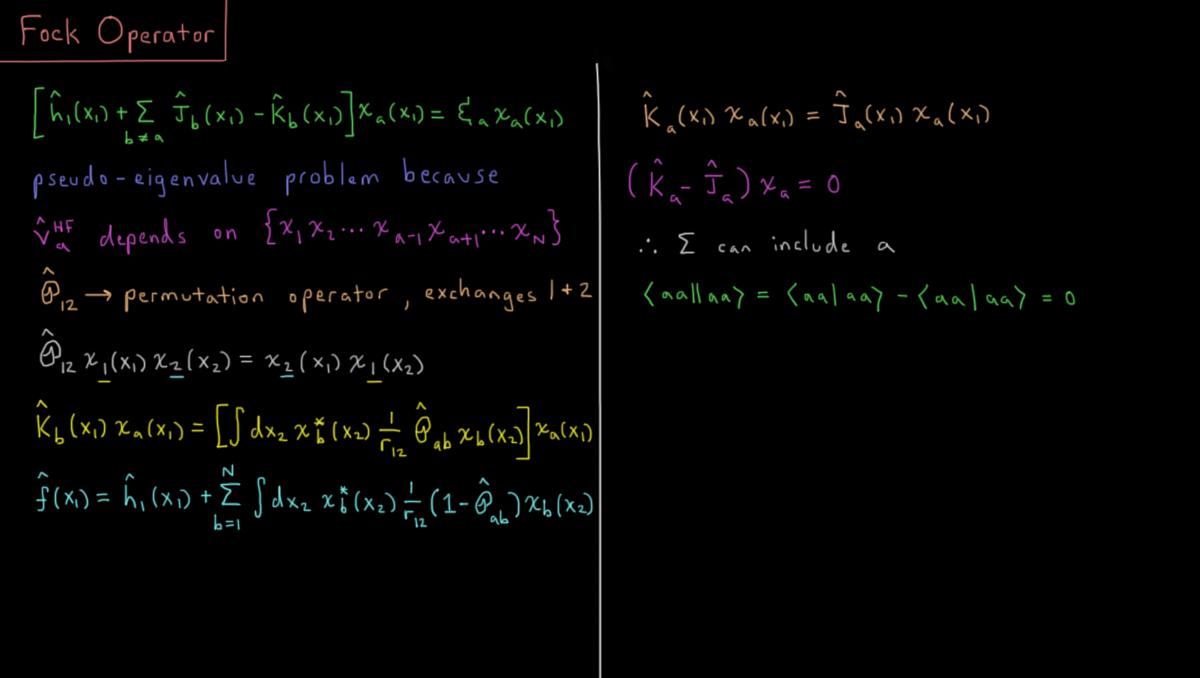 Fock Operator
[ĥ₁(x₁) + Σ_{b≠a} Ĵ_b(x₁) - K̂_b(x₁)]χ_a(x₁) = ξ_a χ_a(x₁)
pseudo-eigenvalue problem because
v̂_a^{HF} depends on {χ₁ χ₂ ··· χ_{a-1} χ_{a+1} ··· χ_N}
𝒫̂₁₂ → permutation operator, exchanges 1 + 2
𝒫̂₁₂ χ₁(x₁) χ₂(x₂) = χ₂(x₁) χ₁(x₂)
K̂_b(x₁) χ_a(x₁) = [∫dx₂ χ_b^*(x₂) 1/r₁₂ 𝒫̂_{ab} χ_b(x₂)]χ_a(x₁)
f̂(x₁) = ĥ₁(x₁) + Σ_{b=1}^{N} ∫dx₂ χ_b^*(x₂) 1/r₁₂ (1-𝒫̂_{ab})χ_b(x₂)
K̂_a(x₁) χ_a(x₁) = Ĵ_a(x₁) χ_a(x₁)
(K̂_a - Ĵ_a) χ_a = 0
∴ Σ can include a
⟨aa||aa⟩ = ⟨aa|aa⟩ - ⟨aa|aa⟩ = 0